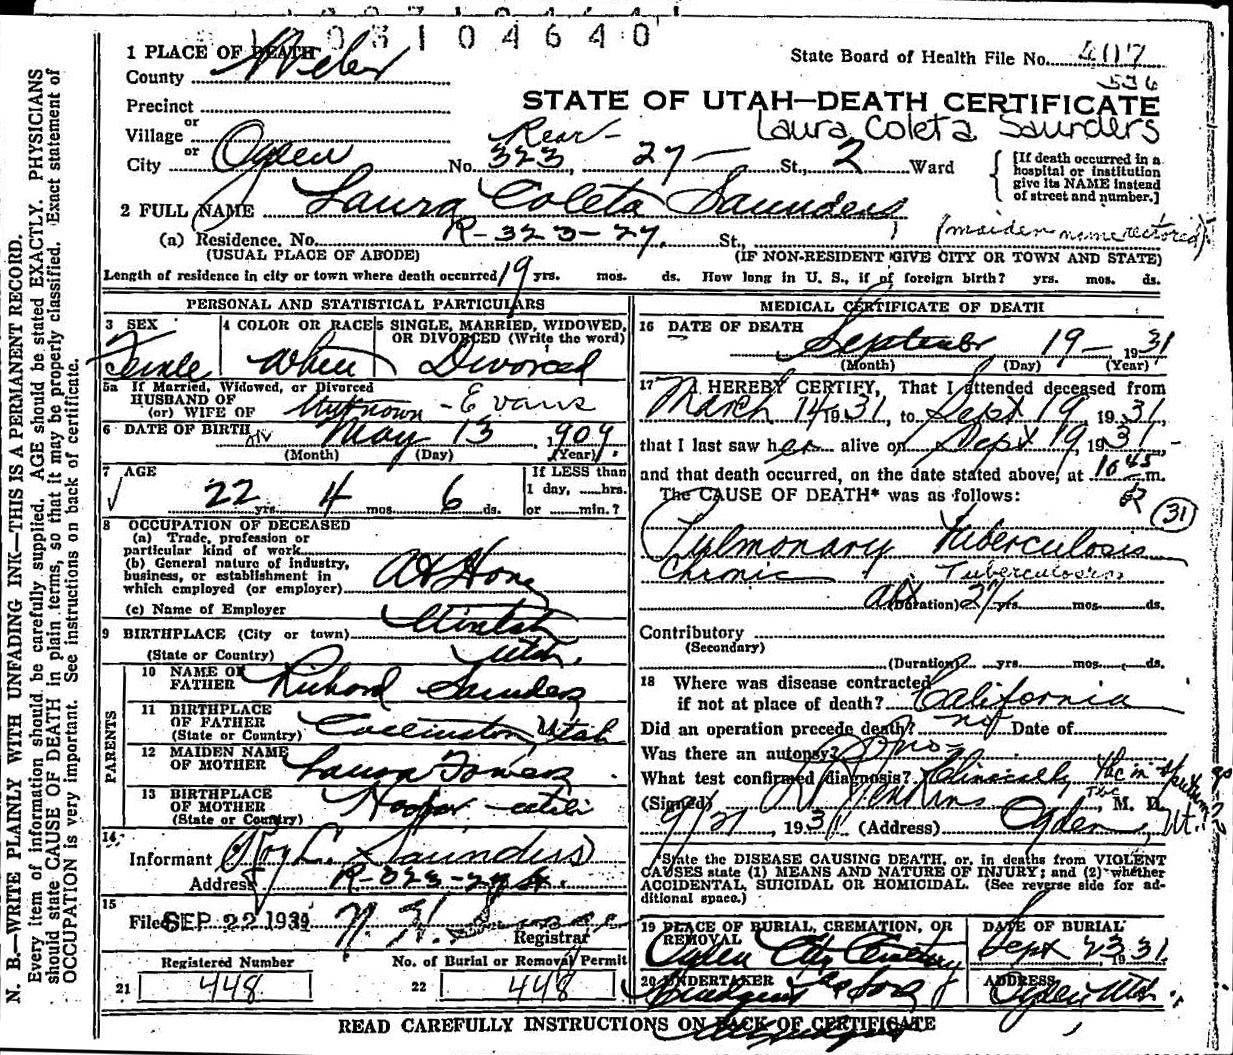 3104640
1 PLACE OF DEATH
County Weber
State Board of Health File No. 407
536
Precinct
or
STATE OF UTAH—DEATH CERTIFICATE
Laura Coleta Saunders
Village
or
City Ogden No. Rear- 323, 27 — St., 2 Ward
[If death occurred in a
hospital or institution
give its NAME instead
of street and number.]
2 FULL NAME Laura Coleta Saunders
(maiden name restored)
(a) Residence. No. R-323-27. St.,
(USUAL PLACE OF ABODE) (IF NON-RESIDENT GIVE CITY OR TOWN AND STATE)
Length of residence in city or town where death occurred 19 yrs. mos. ds. How long in U. S., if of foreign birth? yrs. mos. ds.
PERSONAL AND STATISTICAL PARTICULARS
3 SEX 4 COLOR OR RACE 5 SINGLE, MARRIED, WIDOWED,
OR DIVORCED (Write the word)
Female White Divorced
5a If Married, Widowed, or Divorced
HUSBAND OF
(or) WIFE OF Unknown - Evans
6 DATE OF BIRTH May 13 1909
(Month) (Day) (Year)
7 AGE If LESS than
1 day, hrs.
22 yrs. 4 mos. 6 ds. or min.?
8 OCCUPATION OF DECEASED
(a) Trade, profession or
particular kind of work
(b) General nature of industry,
business, or establishment in
which employed (or employer) At Home
(c) Name of Employer
9 BIRTHPLACE (City or town)
(State or Country) Utah.
PARENTS
10 NAME OF
FATHER Richard Saunders
11 BIRTHPLACE
OF FATHER
(State or Country) Utah
12 MAIDEN NAME
OF MOTHER Laura
13 BIRTHPLACE
OF MOTHER
(State or Country) Hooper
14
Informant Saunders
Address
15
Filed SEP 22 1931
Registrar
Registered Number No. of Burial or Removal Permit
21 448 22 448
MEDICAL CERTIFICATE OF DEATH
16 DATE OF DEATH
September 19 — 1931
(Month) (Day) (Year)
17 I HEREBY CERTIFY, That I attended deceased from
March 14 1931, to Sept 19, 1931,
that I last saw her alive on Sept 19, 1931
and that death occurred, on the date stated above, at 10 45 m.
The CAUSE OF DEATH* was as follows:
31
Pulmonary Tuberculosis
Chronic Tuberculosis
(Duration) yrs. mos. ds.
Contributory
(Secondary)
(Duration) yrs. mos. ds.
18 Where was disease contracted
if not at place of death? California
Did an operation precede death? no Date of
Was there an autopsy? no
What test confirmed diagnosis? Clinical, Tbc in sputum
(Signed) Jenkins, M. D.
9/21, 1931 (Address) Ogden, Ut.
*State the DISEASE CAUSING DEATH, or, in deaths from VIOLENT
CAUSES state (1) MEANS AND NATURE OF INJURY; and (2) whether
ACCIDENTAL, SUICIDAL OR HOMICIDAL. (See reverse side for ad-
ditional space.)
19 PLACE OF BURIAL, CREMATION, OR
REMOVAL
DATE OF BURIAL
Ogden City Cemetery Sept 23 1931
20 UNDERTAKER ADDRESS
Ogden Utah
READ CAREFULLY INSTRUCTIONS ON BACK OF CERTIFICATE
N. B.—WRITE PLAINLY WITH UNFADING INK—THIS IS A PERMANENT RECORD.
Every item of information should be carefully supplied. AGE should be stated EXACTLY. PHYSICIANS
should state CAUSE OF DEATH in plain terms, so that it may be properly classified. Exact statement of
OCCUPATION is very important. See instructions on back of certificate.